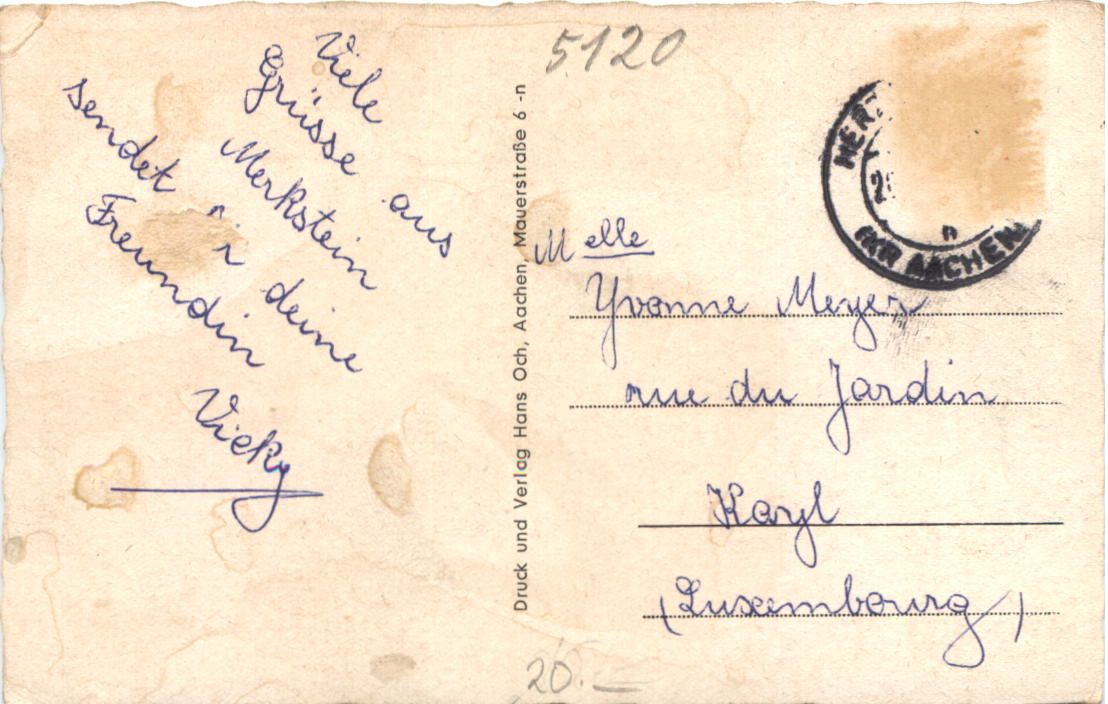 5120
Viele
Grüsse aus
Merkstein
sendet dir deine
Freundin
Vicky
Druck und Verlag Hans Och, Aachen, Mauerstraße 6 -n
HERZ
n
KR AACHEN
Melle
Yvonne Meyer
rue du Jardin
Kayl
(Luxembourg)
20.—